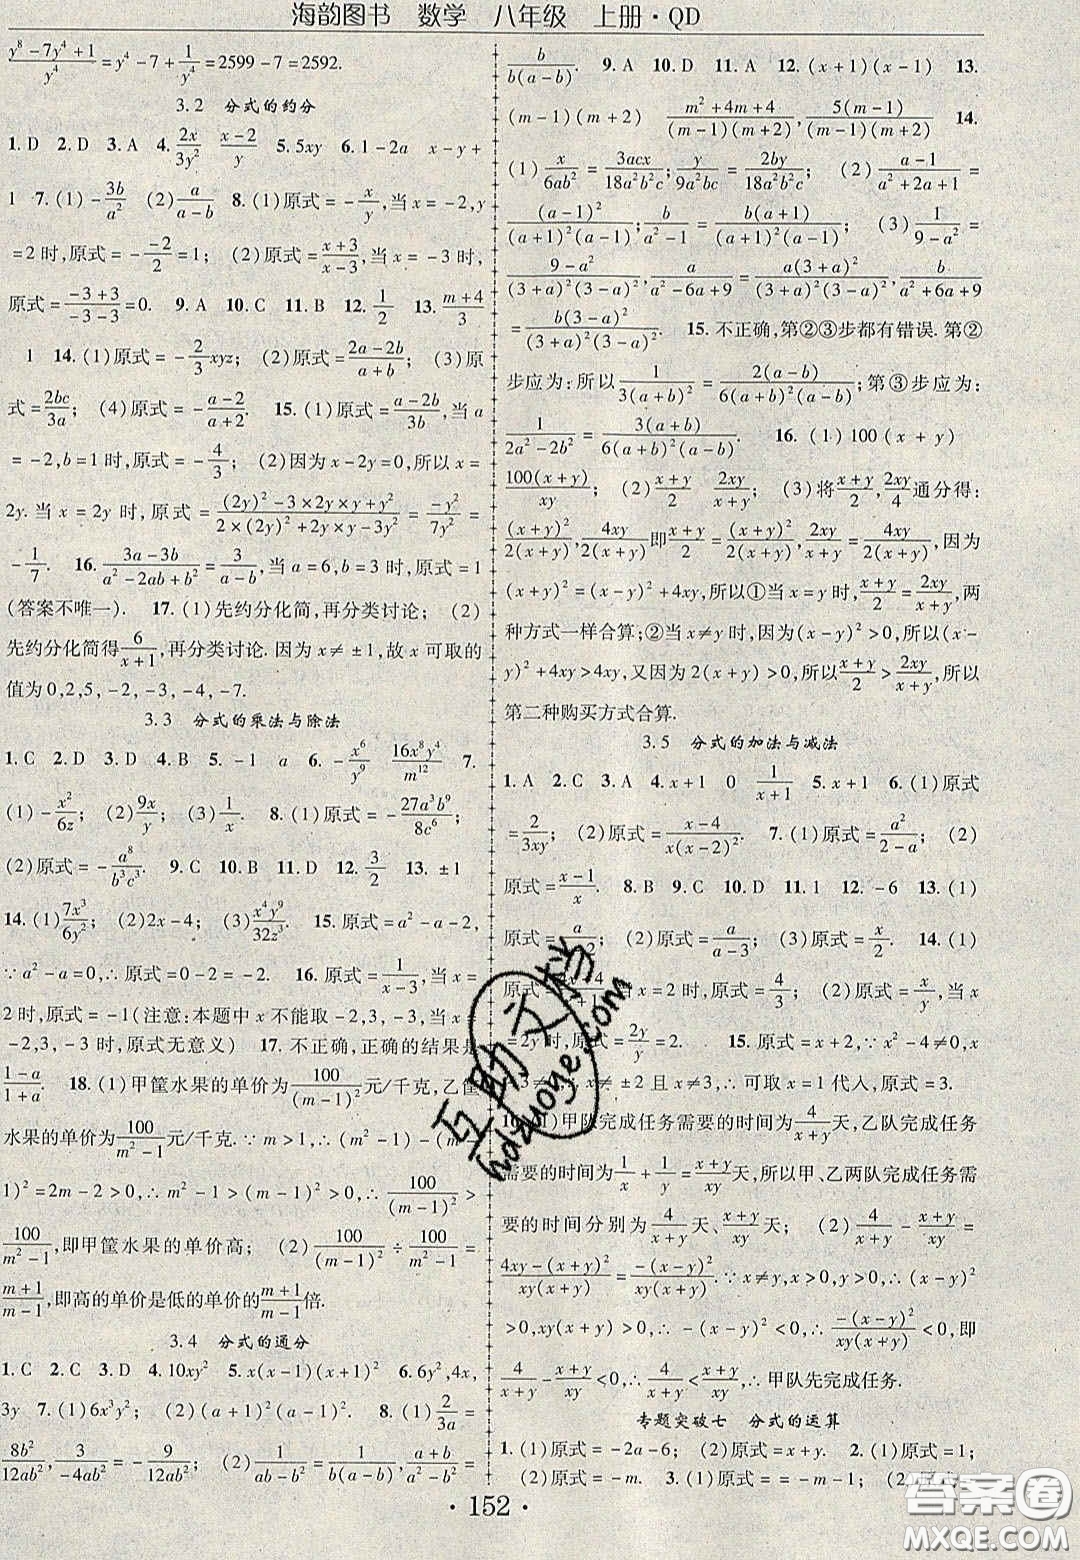 海韵图书 数学 八年级 上册·QD
(y⁸-7y⁴+1)/y⁴=y⁴-7+1/y⁴=2599-7=2592.
3.2 分式的约分
1.D 2.D 3.A 4.2x/3y² (x-2)/y 5.5xy 6.1-2a x-y+
1 7.(1)-3b/a² (2)a/(a-b) 8.(1)原式=-x/y,当x=-2,y
=2时,原式=-(-2)/2=1; (2)原式=(x+3)/(x-3),当x=-3时,
原式=(-3+3)/(-3-3)=0. 9.A 10.C 11.B 12.1/2 13.(m+4)/3
1 14.(1)原式=-2/3xyz; (2)原式=(2a-2b)/(a+b); (3)原
式=2bc/3a; (4)原式=-(a-2)/(a+2). 15.(1)原式=(a-2b)/3b,当a
=-2,b=1时,原式=-4/3; (2)因为x-2y=0,所以x=
2y.当x=2y时,原式=((2y)²-3×2y×y+y²)/(2×(2y)²+2y×y-3y²)=-y²/7y²=
-1/7. 16.(3a-3b)/(a²-2ab+b²)=3/(a-b),当a=6,b=3时,原式=1
(答案不唯一). 17.(1)先约分化简,再分类讨论; (2)
先约分化简得6/(x+1),再分类讨论.因为x≠±1,故x可取的
值为0,2,5,-2,-3,-4,-7.
3.3 分式的乘法与除法
1.C 2.D 3.D 4.B 5.-1 a 6.-x⁶/y⁹ 16x⁸y⁴/m¹² 7.
(1)-x²/6z; (2)9x/y; (3)1/x. 8.(1)原式=-27a³b⁹/8c⁶;
(2)原式=-a⁸/b³c³. 9.C 10.B 11.D 12.3/2 13.±1
14.(1)7x³/6y²; (2)2x-4; (3)x⁴y⁹/32z³. 15.原式=a²-a-2,
∵a²-a=0,∴原式=0-2=-2. 16.原式=1/(x-3),当x=
2时,原式=-1(注意:本题中x不能取-2,3,-3,当x=
-2,3,-3时,原式无意义) 17.不正确,正确的结果是
(1-a)/(1+a). 18.(1)甲筐水果的单价为100/(m-1)²元/千克,乙筐
水果的单价为100/(m²-1)元/千克.∵m>1,∴(m²-1)-(m-
1)²=2m-2>0,∴m²-1>(m-1)²>0,∴100/(m-1)²>
100/(m²-1),即甲筐水果的单价高; (2)100/(m-1)²÷100/(m²-1)=
(m+1)/(m-1),即高的单价是低的单价的(m+1)/(m-1)倍.
3.4 分式的通分
1.C 2.C 3.D 4.10xy² 5.x(x-1)(x+1)² 6.6y²,4x,
3y 7.(1)6x³y²; (2)(a+1)²(a-1)². 8.(1)2/3a=
8b²/12ab²,3/(-4ab²)=-9/12ab²; (2)1/(ab-b²)=1/(b(a-b)),(a+b)/(ab²)=
b/(b(a-b)). 9.A 10.D 11.A 12.(x+1)(x-1) 13.
(m-1)(m+2) (m²+4m+4)/((m-1)(m+2)),5(m-1)/((m-1)(m+2)) 14.
(1)x/6ab²=3acx/18a²b²c,y/9a²bc=2by/18a²b²c; (2)(a-1)/(a²+2a+1)=
(a-1)²/((a+1)²(a-1));b/(a²-1)=b(a+1)/((a+1)²(a-1)); (3)1/(9-a²)=
(9-a²)/((3+a)²(3-a)²),a/(a²-6a+9)=a(3+a)²/((3+a)²(3-a)²),b/(a²+6a+9)
=b(3-a)²/((3+a)²(3-a)²). 15.不正确,第②③步都有错误.第②
步应为:所以1/(3(a+b))=2(a-b)/(6(a+b)(a-b));第③步应为:
1/(2a²-2b²)=3(a+b)/(6(a+b)(a-b)). 16.(1)100(x+y)
100(x+y)/xy; (2)(x+y)/2 2xy/(x+y); (3)将(x+y)/2,2xy/4通分得:
(x+y)²/(2(x+y)),4xy/(2(x+y))即(x+y)/2=(x+y)²/(2(x+y)),2xy/(x+y)=4xy/(2(x+y)),因为
(x+y)²=(x-y)²+4xy,所以①当x=y时,(x+y)/2=2xy/(x+y),两
种方式一样合算;②当x≠y时,因为(x-y)²>0,所以(x-
y)²+4xy>4xy,又因为2(x+y)>0,所以(x+y)/2>2xy/(x+y),所以
第二种购买方式合算.
3.5 分式的加法与减法
1.A 2.C 3.A 4.x+1 0 1/(x+1) 5.x+1 6.(1)原式
=2/3xy; (2)原式=(x-4)/(x(x-2)²). 7.(1)原式=a²/(2-a); (2)
原式=(x-1)/x. 8.B 9.D 10.D 11.1 12.-6 13.(1)
原式=a/ 2; (2)原式=a/(a-3); (3)原式=x/2. 14.(1)
原式= 当x=2时,原式=4/3; (2)原式=x/y,当x
=2y时,原式=2y/y=2. 15.原式=x+2,∵x²-4≠0,x
-3≠ ≠±2且x≠3,∴可取x=1代入,原式=3.
1)甲队完成任务需要的时间为4/(x+y)天,乙队完成任务
需要的时间为1/x+1/y=(x+y)/xy天,所以甲、乙两队完成任务需
要的时间分别为4/(x+y)天、(x+y)/xy天; (2)4/(x+y)-(x+y)/xy=
(4xy-(x+y)²)/(xy(x+y))=-(x-y)²/(xy(x+y)).∵x≠y,x>0,y>0,∴(x-y)²
>0,xy(x+y)>0,∴-(x-y)²<0,∴-(x-y)²/(xy(x+y))<0,即
4/(x+y)-(x+y)/xy<0,∴4/(x+y)<(x+y)/xy,∴甲队先完成任务.
专题突破七 分式的运算
1.(1)原式=-2a-6; (2)原式=x+y. 2.(1)原式=1;
(2)原式=-m. 3.(1)原式==-m-1; (2)原式=
·152·
互助文档
hdzuoye.com
答案圈
MXQE.COM